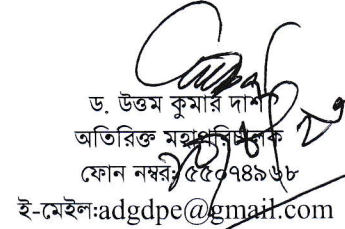 ড. উত্তম কুমার দাশ
অতিরিক্ত মহাপরিচালক
ফোন নম্বর: ৫৫০৭৪৯৬৮
ই-মেইল:adgdpe@gmail.com